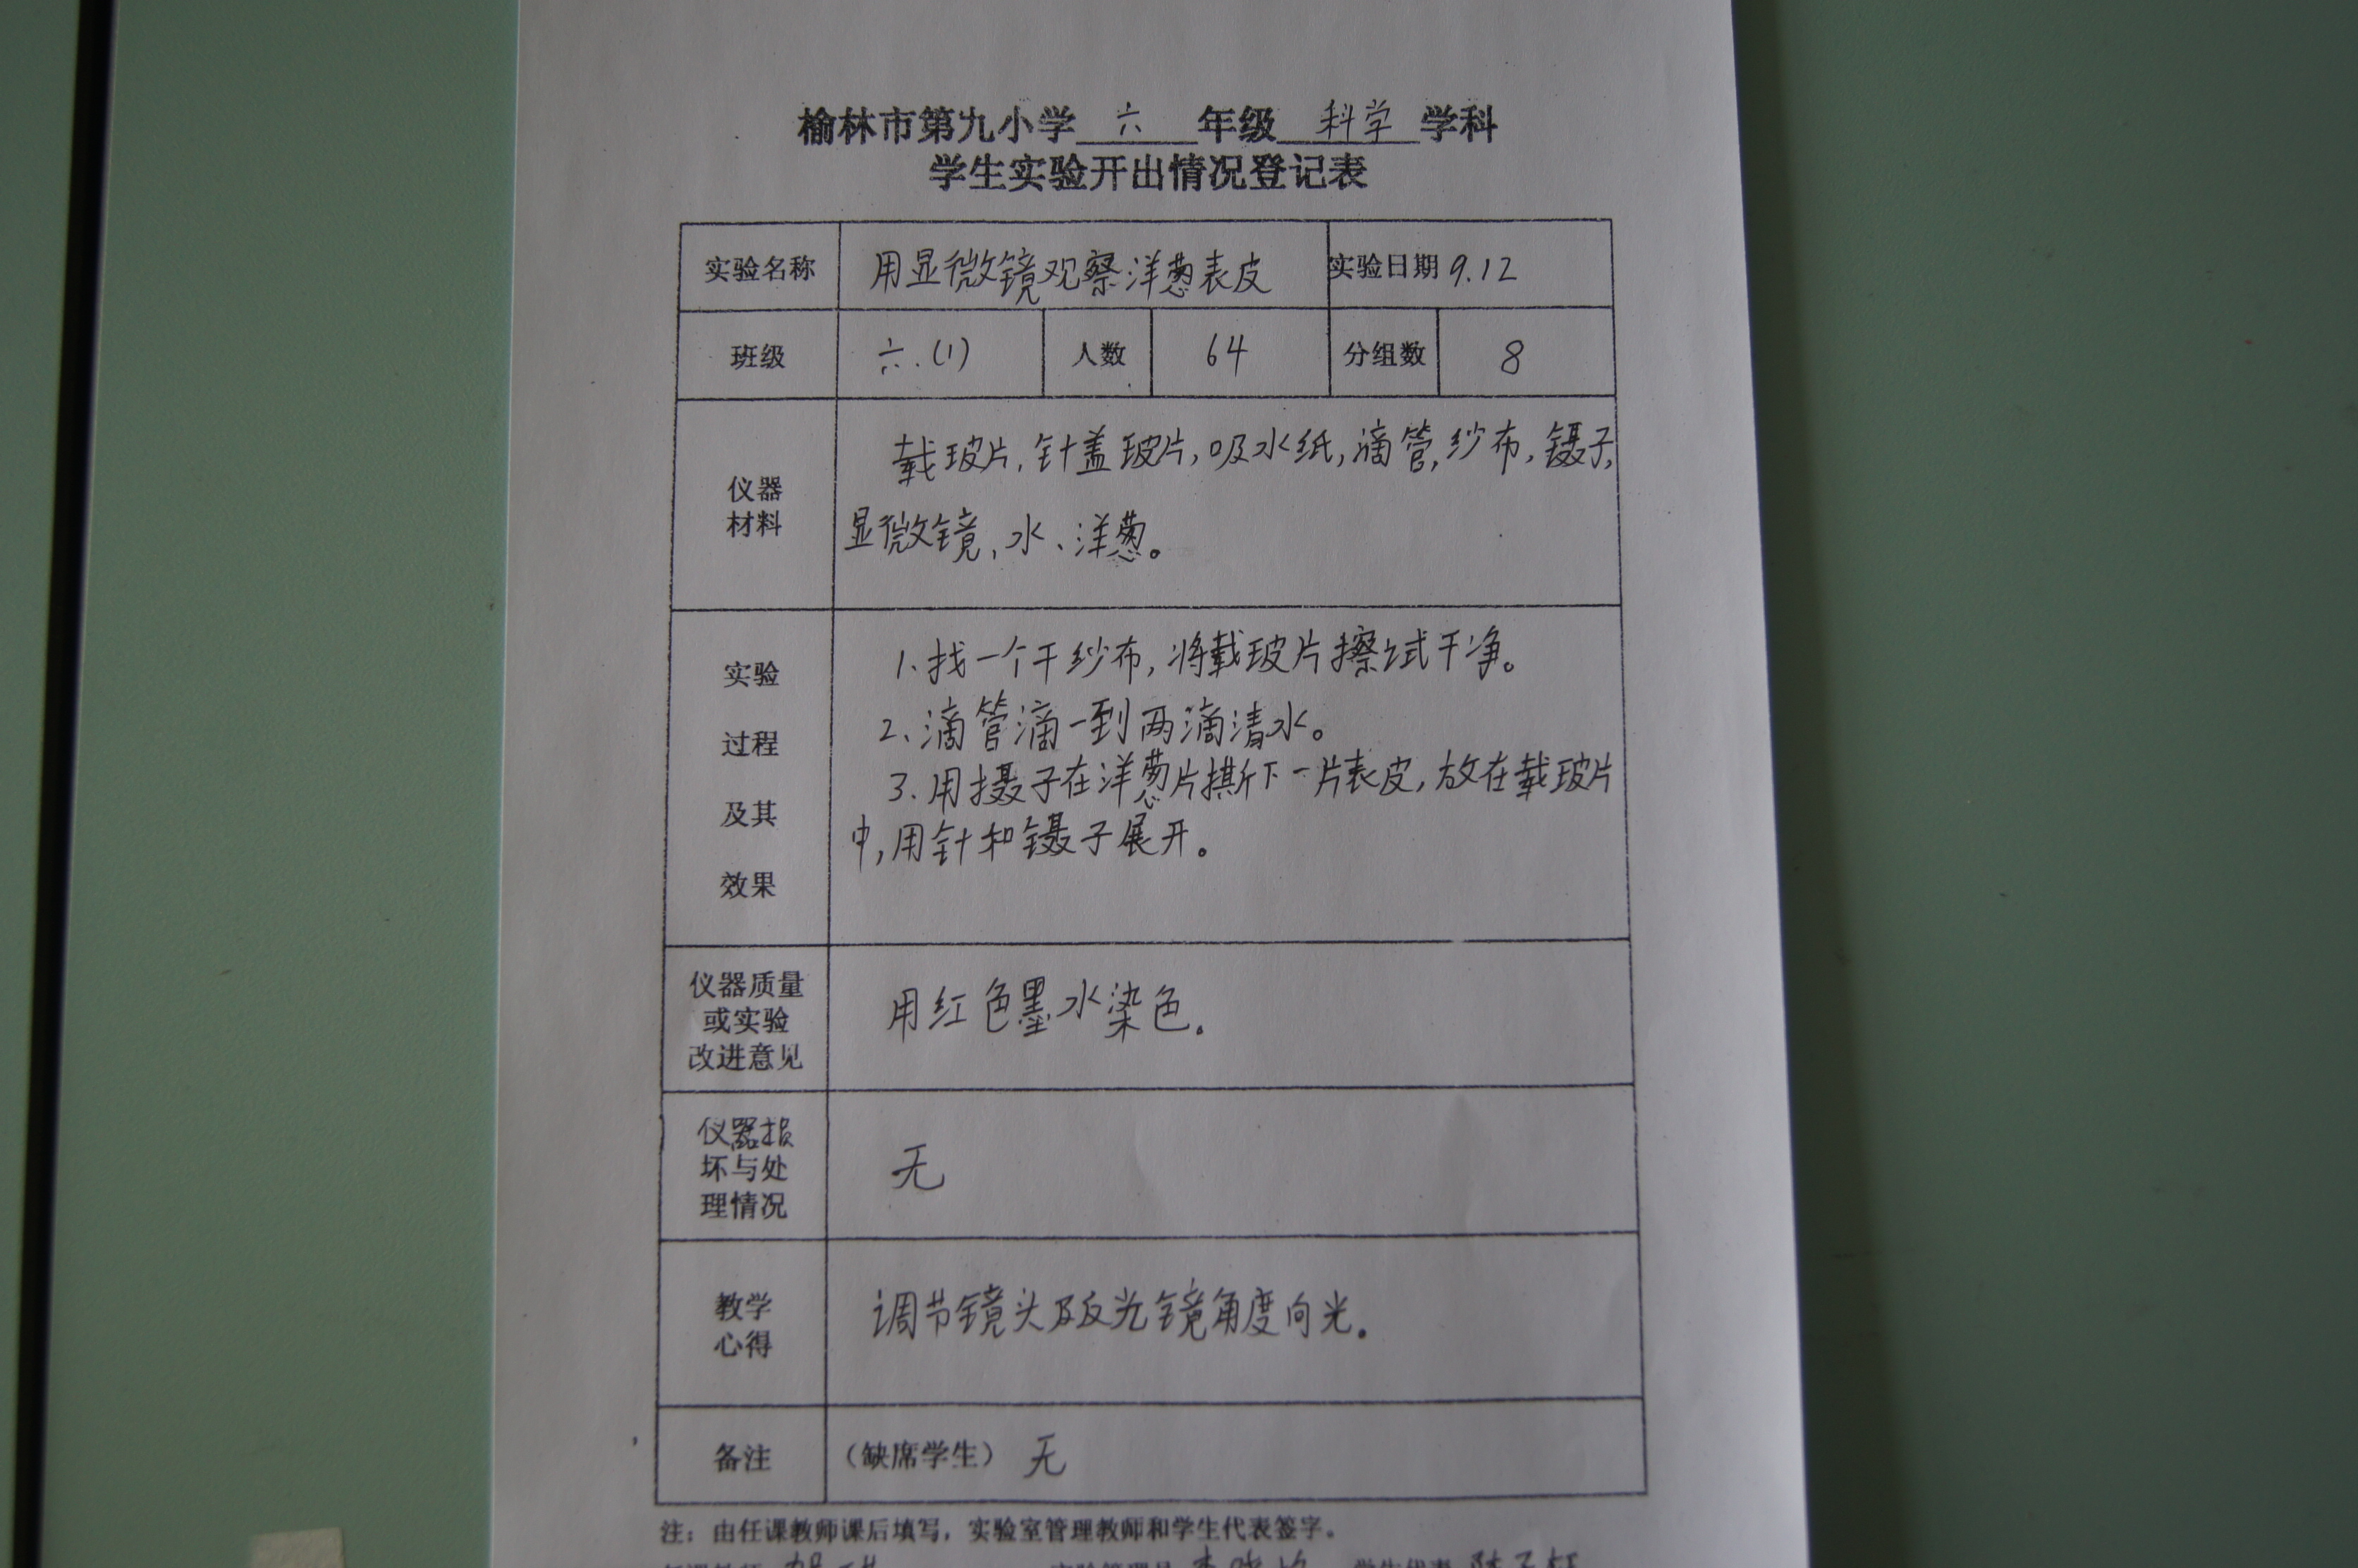 榆林市第九小学 六 年级 科学 学科
学生实验开出情况登记表
实验名称 用显微镜观察洋葱表皮 实验日期 9.12
班级 六.(1) 人数 64 分组数 8
仪器
材料
载玻片,针盖玻片,吸水纸,滴管,纱布,镊子,
显微镜、水、洋葱。
实验
过程
及其
效果
1.找一个干纱布,将载玻片擦试干净。
2、滴管滴一到两滴清水。
3.用摄子在洋葱片撕下一片表皮,放在载玻片
中,用针和镊子展开。
仪器质量
或实验
改进意见
用红色墨水染色。
仪器损
坏与处
理情况
无
教学
心得
调节镜头及反光镜角度向光。
备注 (缺席学生) 无
注:由任课教师课后填写,实验室管理教师和学生代表签字。